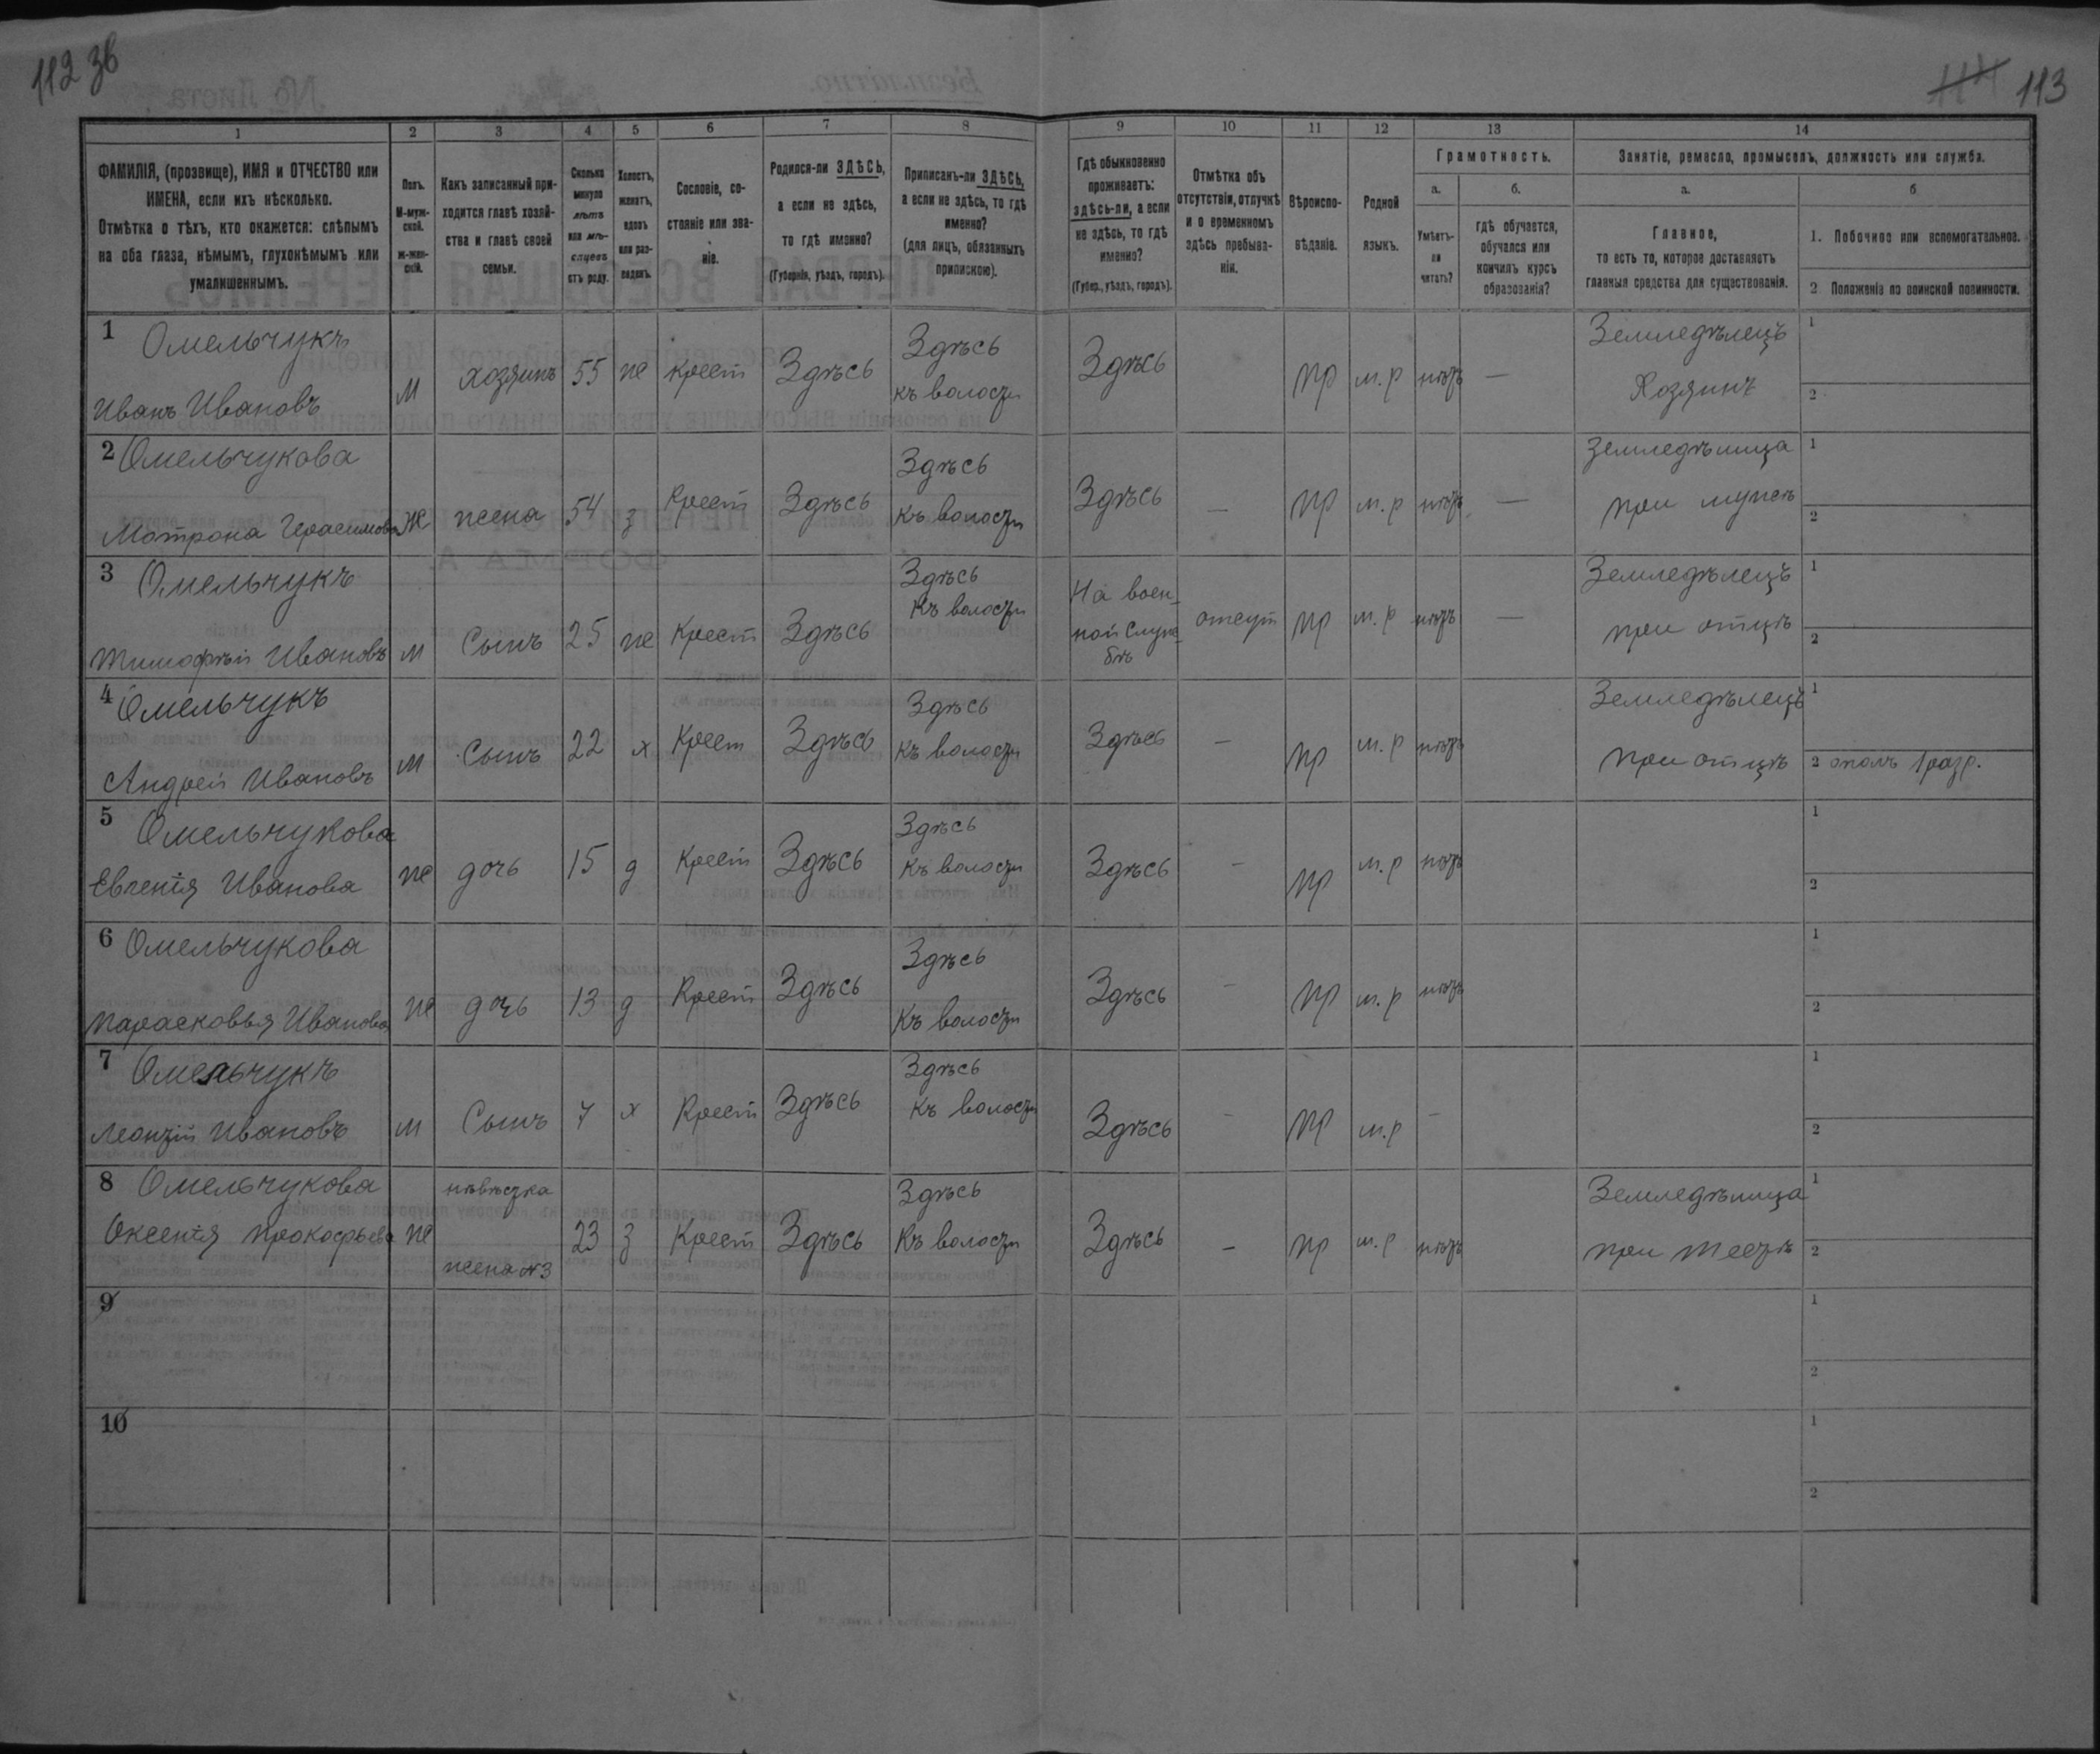 112 зв
114 113
1 2 3 4 5 6 7 8 9 10 11 12 13 14
ФАМИЛІЯ, (прозвище), ИМЯ и ОТЧЕСТВО или
ИМЕНА, если ихъ нѣсколько.
Отмѣтка о тѣхъ, кто окажется: слѣпымъ
на оба глаза, нѣмымъ, глухонѣмымъ или
умалишеннымъ.
Полъ.
М-муж-
ской.
ж-жен-
скій.
Какъ записанный при-
ходится главѣ хозяй-
ства и главѣ своей
семьи.
Сколько
минуло
лѣтъ
или мѣ-
сяцевъ
отъ роду.
Холостъ,
женатъ,
вдовъ
или раз-
веденъ.
Сословіе, со-
стояніе или зва-
ніе.
Родился-ли ЗДѢСЬ,
а если не здѣсь,
то гдѣ именно?
(Губернія, уѣздъ, городъ).
Приписанъ-ли ЗДѢСЬ,
а если не здѣсь, то гдѣ
именно?
(для лицъ, обязанныхъ
припискою).
Гдѣ обыкновенно
проживаетъ:
здѣсь-ли, а если
не здѣсь, то гдѣ
именно?
(Губер., уѣздъ, городъ).
Отмѣтка объ
отсутствіи, отлучкѣ
и о временномъ
здѣсь пребыва-
ніи.
Вѣроиспо-
вѣданіе.
Родной
языкъ.
Грамотность.
а. б.
Умѣетъ-
ли
читать?
гдѣ обучается,
обучался или
кончилъ курсъ
образованія?
Занятіе, ремесло, промыселъ, должность или служба.
а. б
Главное,
то есть то, которое доставляетъ
главныя средства для существованія.
1. Побочное или вспомогательное.
2 Положеніе по воинской повинности.
1 Омельчукъ
Иванъ Ивановъ
м хозяинъ 55 же крест Здѣсь
Здѣсь
къ волости
Здѣсь пр м.р нѣтъ —
Земледѣлецъ
Хозяинъ
1
2
2 Омельчукова
Мотрона Герасимова
Же жена 54 з Крест Здѣсь
Здѣсь
Къ волости
Здѣсь — пр м.р нѣтъ —
Земледѣлица
при мужѣ
1
2
3 Омельчукъ
Тимофѣй Ивановъ
м Сынъ 25 же Крест Здѣсь
Здѣсь
Къ волости
На воен-
ной Служ-
бѣ
отсут пр м.р нѣтъ —
Земледѣлецъ
при отцѣ
1
2
4 Омельчукъ
Андрей Ивановъ
м Сынъ 22 х Крест Здѣсь
Здѣсь
Къ волости
Здѣсь — пр м.р нѣтъ
Земледѣлецъ
при отцѣ
1
2 ополч 1 разр.
5 Омельчукова
Евгенія Иванова
же дочь 15 д Крест Здѣсь
Здѣсь
Къ волости
Здѣсь — пр м.р нѣтъ
1
2
6 Омельчукова
Парасковья Иванова
же дочь 13 д Крест Здѣсь
Здѣсь
Къ волости
Здѣсь — пр м.р нѣтъ
1
2
7 Омельчукъ
Леонтій Ивановъ
м Сынъ х Крест Здѣсь
Здѣсь
Къ волости
Здѣсь — пр м.р —
1
2
8 Омельчукова
Оксенія Прокофьева
же
невѣстка
жена №3
23 з Крест Здѣсь
Здѣсь
Къ волости
Здѣсь — пр м.р нѣтъ
Земледѣлица
при тестѣ
1
2
9
1
2
10
1
2